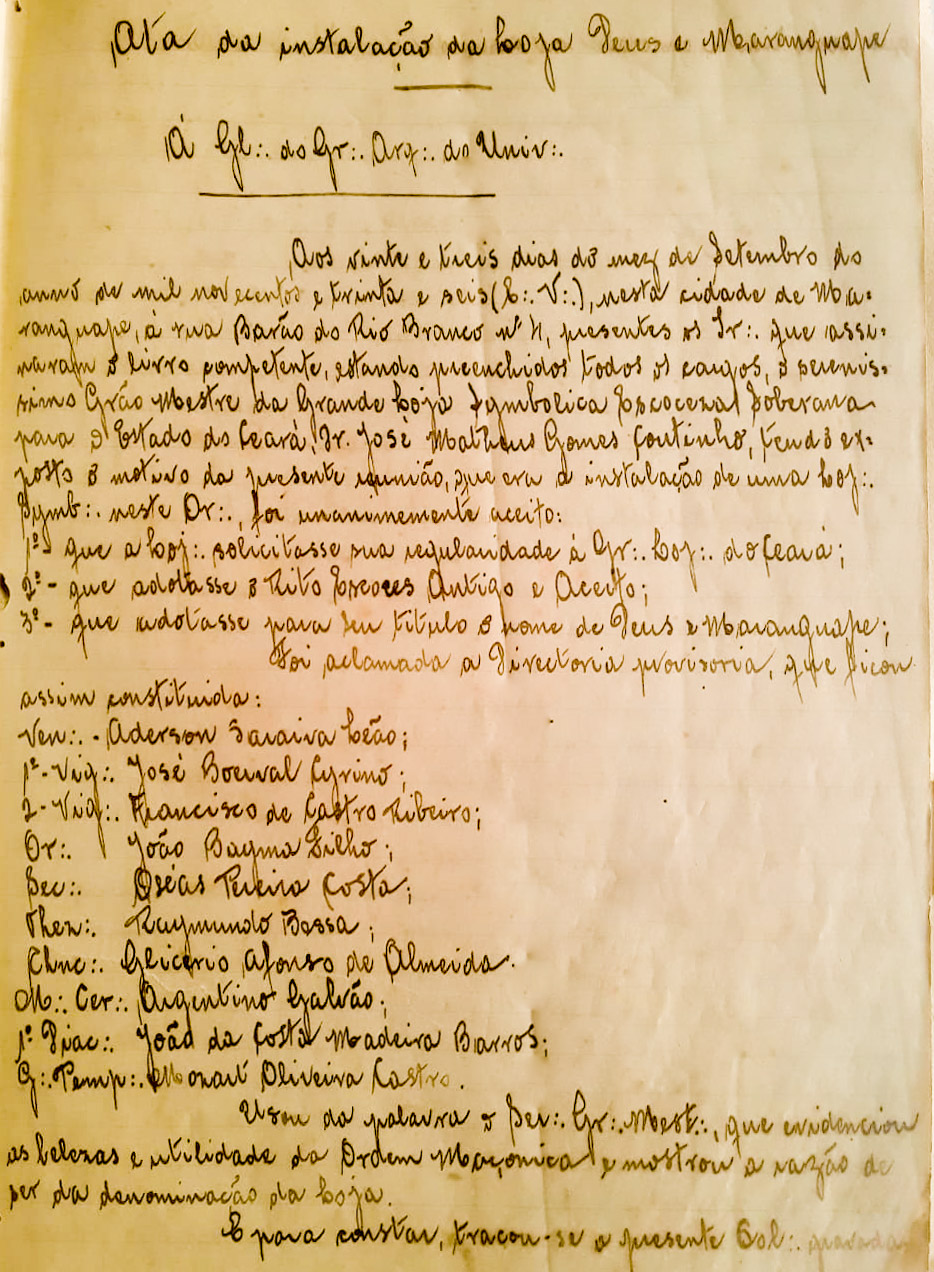 Ata da instalação da Loja Deus e Maranguape
Á Gl∴ do Gr∴ Arq∴ do Univ∴
Aos vinte e treis dias do mez de Setembro do
anno de mil novecentos e trinta e seis (E∴ V∴), nesta cidade de Ma-
ranguape, á rua Barão do Rio Branco nº 11, presentes os Ir∴ que assi-
naram o livro competente, estando preenchidos todos os cargos, o serenis-
simo Grão Mestre da Grande Loja Symbolica Escoceza Soberana
para o Estado do Ceará, Ir. José Matheus Gomes Coutinho, tendo ex-
posto o motivo da presente reunião, que era a instalação de uma Loj∴
Symb∴ neste Or∴, foi unanimemente aceito:
1º- que a Loj∴ solicitasse sua regularidade á Gr∴ Loj∴ do Ceará;
2º- que adotasse o Rito Escoces Antigo e Aceito;
3º- que adotasse para seu titulo o nome de Deus e Maranguape;
Foi aclamada a Directoria provisoria, que ficou
assim constituida:
Ven∴ - Aderson Saraiva Leão;
1º-Vig∴ José Boerval Cyrino;
2-Vig∴ Francisco de Castro Ribeiro;
Or∴ João Bayma Filho;
Sec∴ Oséas Pereira Costa;
Thez∴ Raymundo Bessa;
Chnc∴ Glicerio Afonso de Almeida.
M∴ Cer∴ Argentino Galvão;
1º Diac∴ João da Costa Madeira Barros;
G∴ Temp∴ Mozart Oliveira Castro.
Usou da palavra o Ser∴ Gr∴ Mest∴, que evidenciou
as belezas e utilidade da Ordem Maçonica e mostrou a razão de
ser da denominação da Loja.
E para constar, traçou-se a presente Col∴